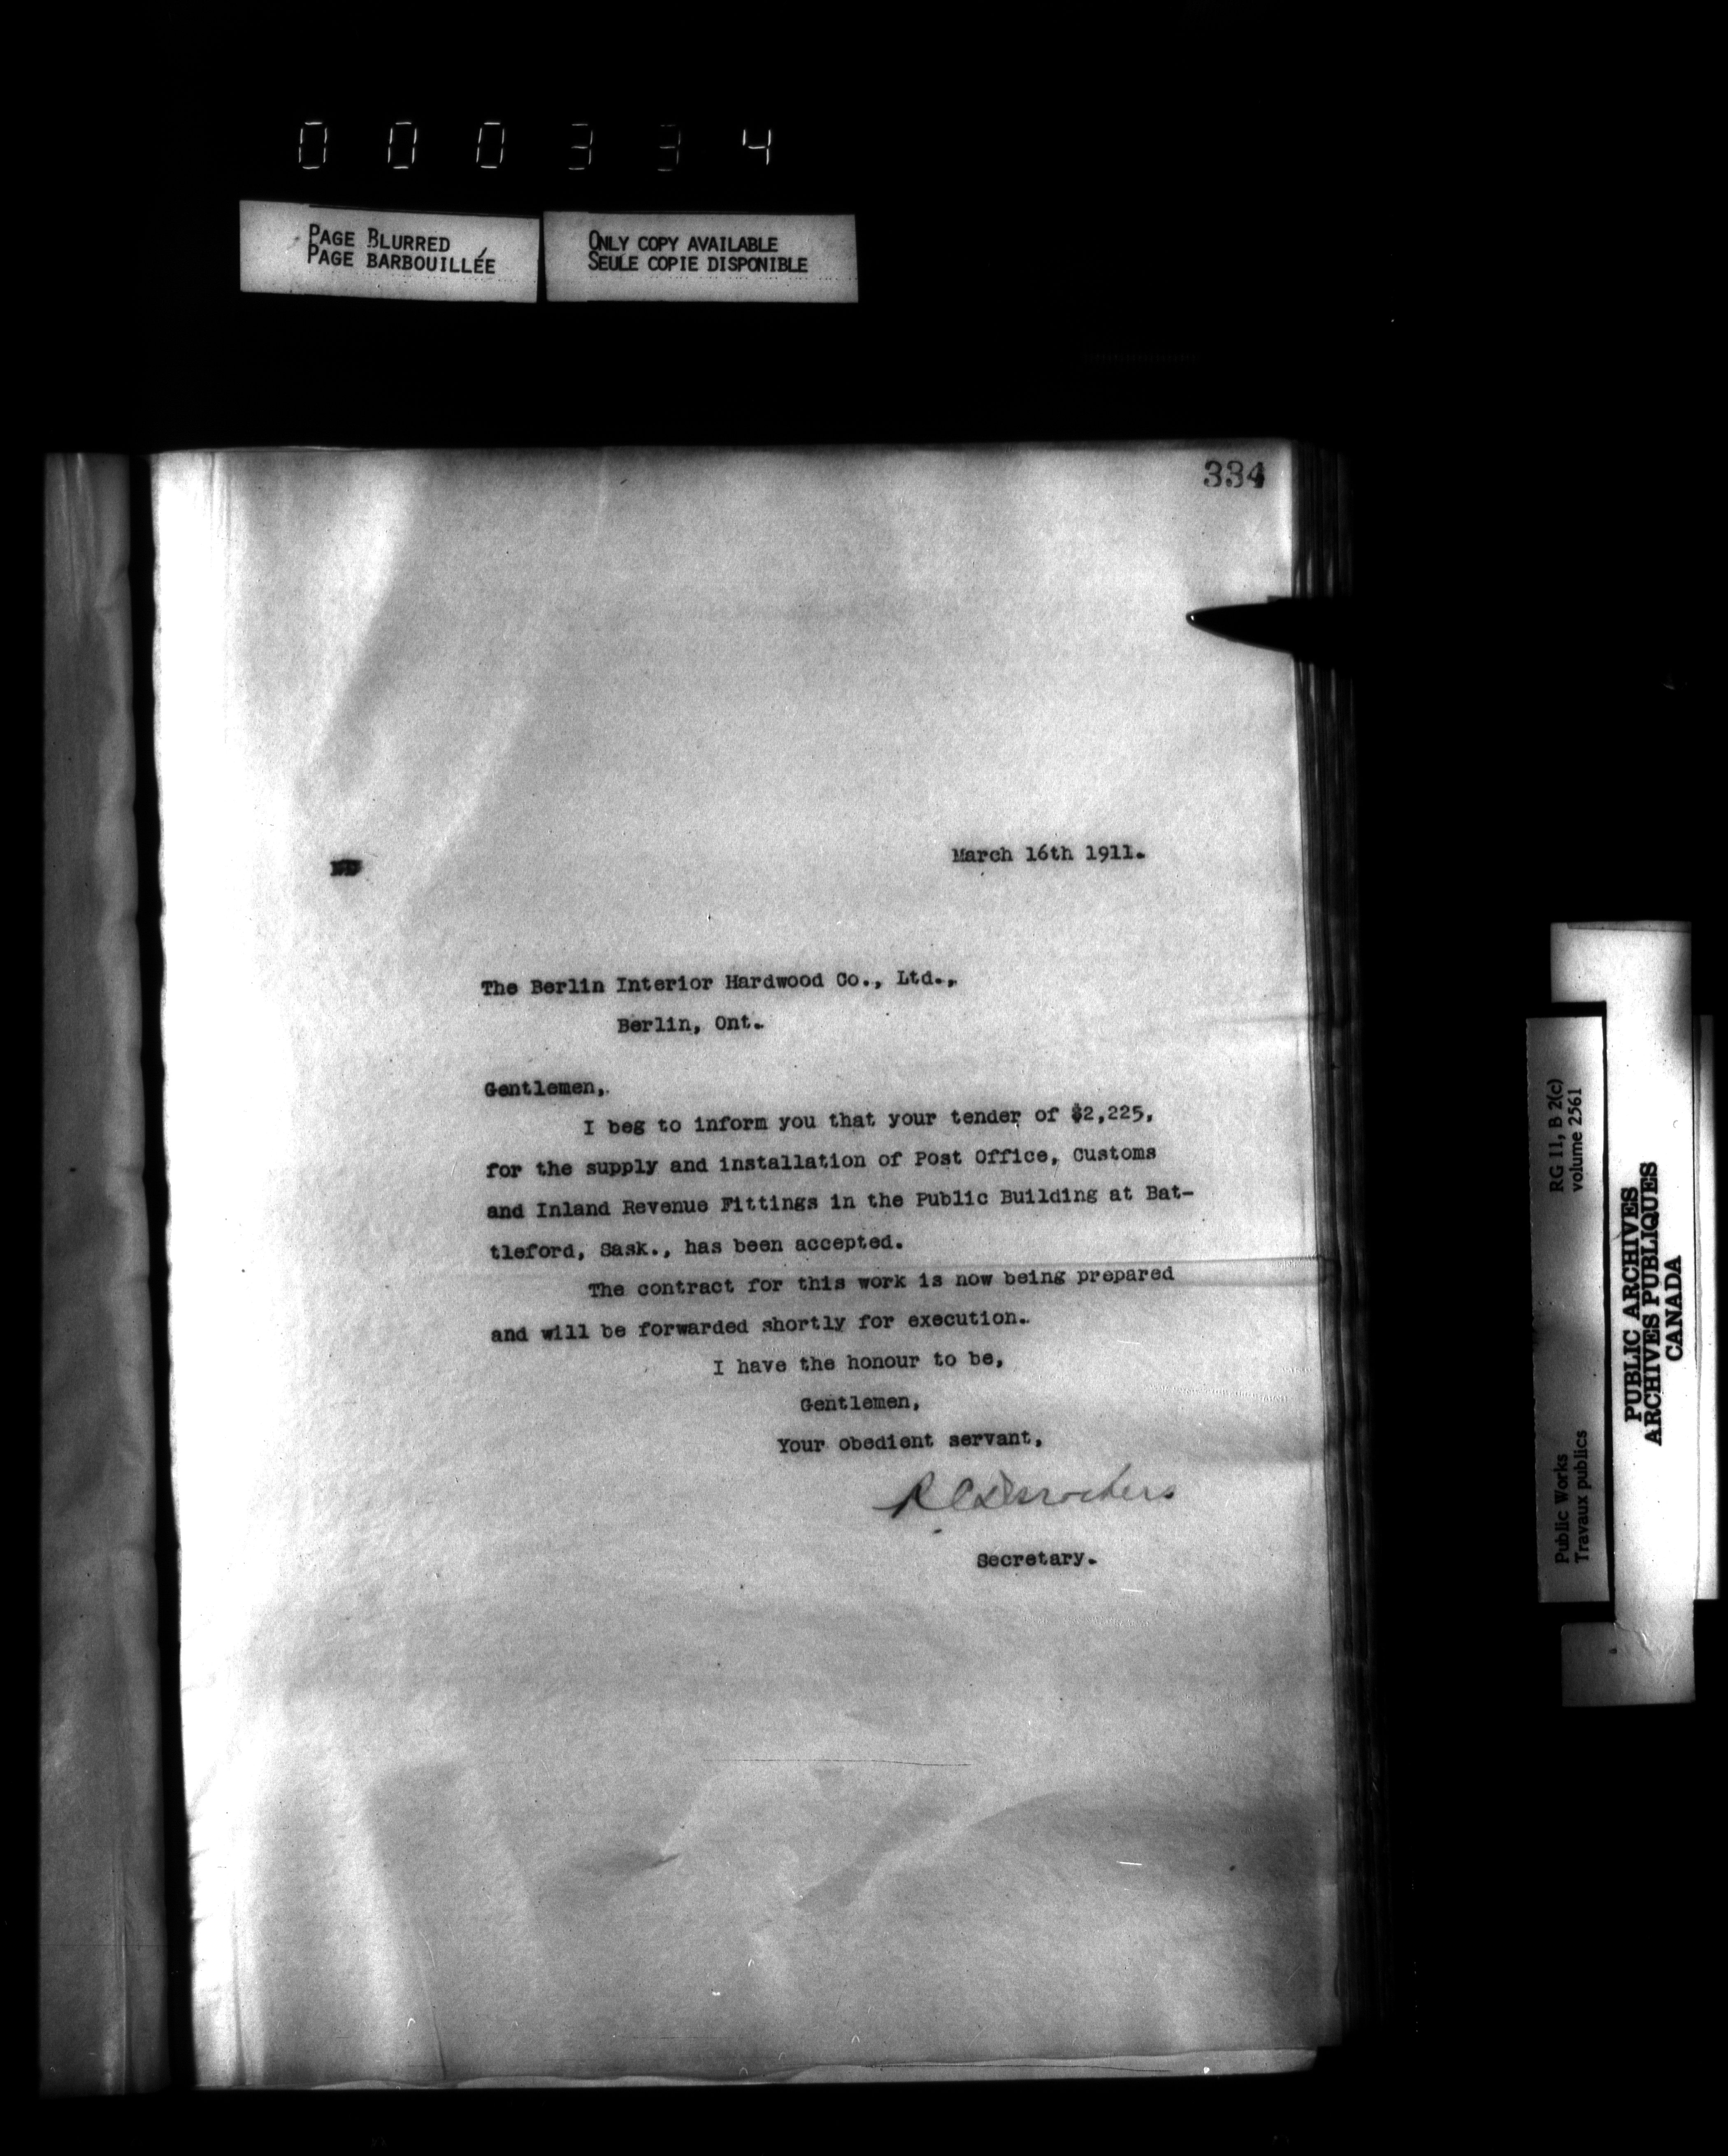 000334
PAGE BLURRED
PAGE BARBOUILLÉE
ONLY COPY AVAILABLE
SEULE COPIE DISPONIBLE
334
March 16th 1911.
The Berlin Interior Hardwood Co., Ltd.,
Berlin, Ont.
Gentlemen,
I beg to inform you that your tender of $2,225,
for the supply and installation of Post Office, Customs
and Inland Revenue Fittings in the Public Building at Bat-
tleford, Sask., has been accepted.
The contract for this work is now being prepared
and will be forwarded shortly for execution.
I have the honour to be,
Gentlemen,
Your obedient servant,
R C Desrochers
Secretary.
RG 11, B 2(c)
volume 2561
Public Works
Travaux publics
PUBLIC ARCHIVES
ARCHIVES PUBLIQUES
CANADA